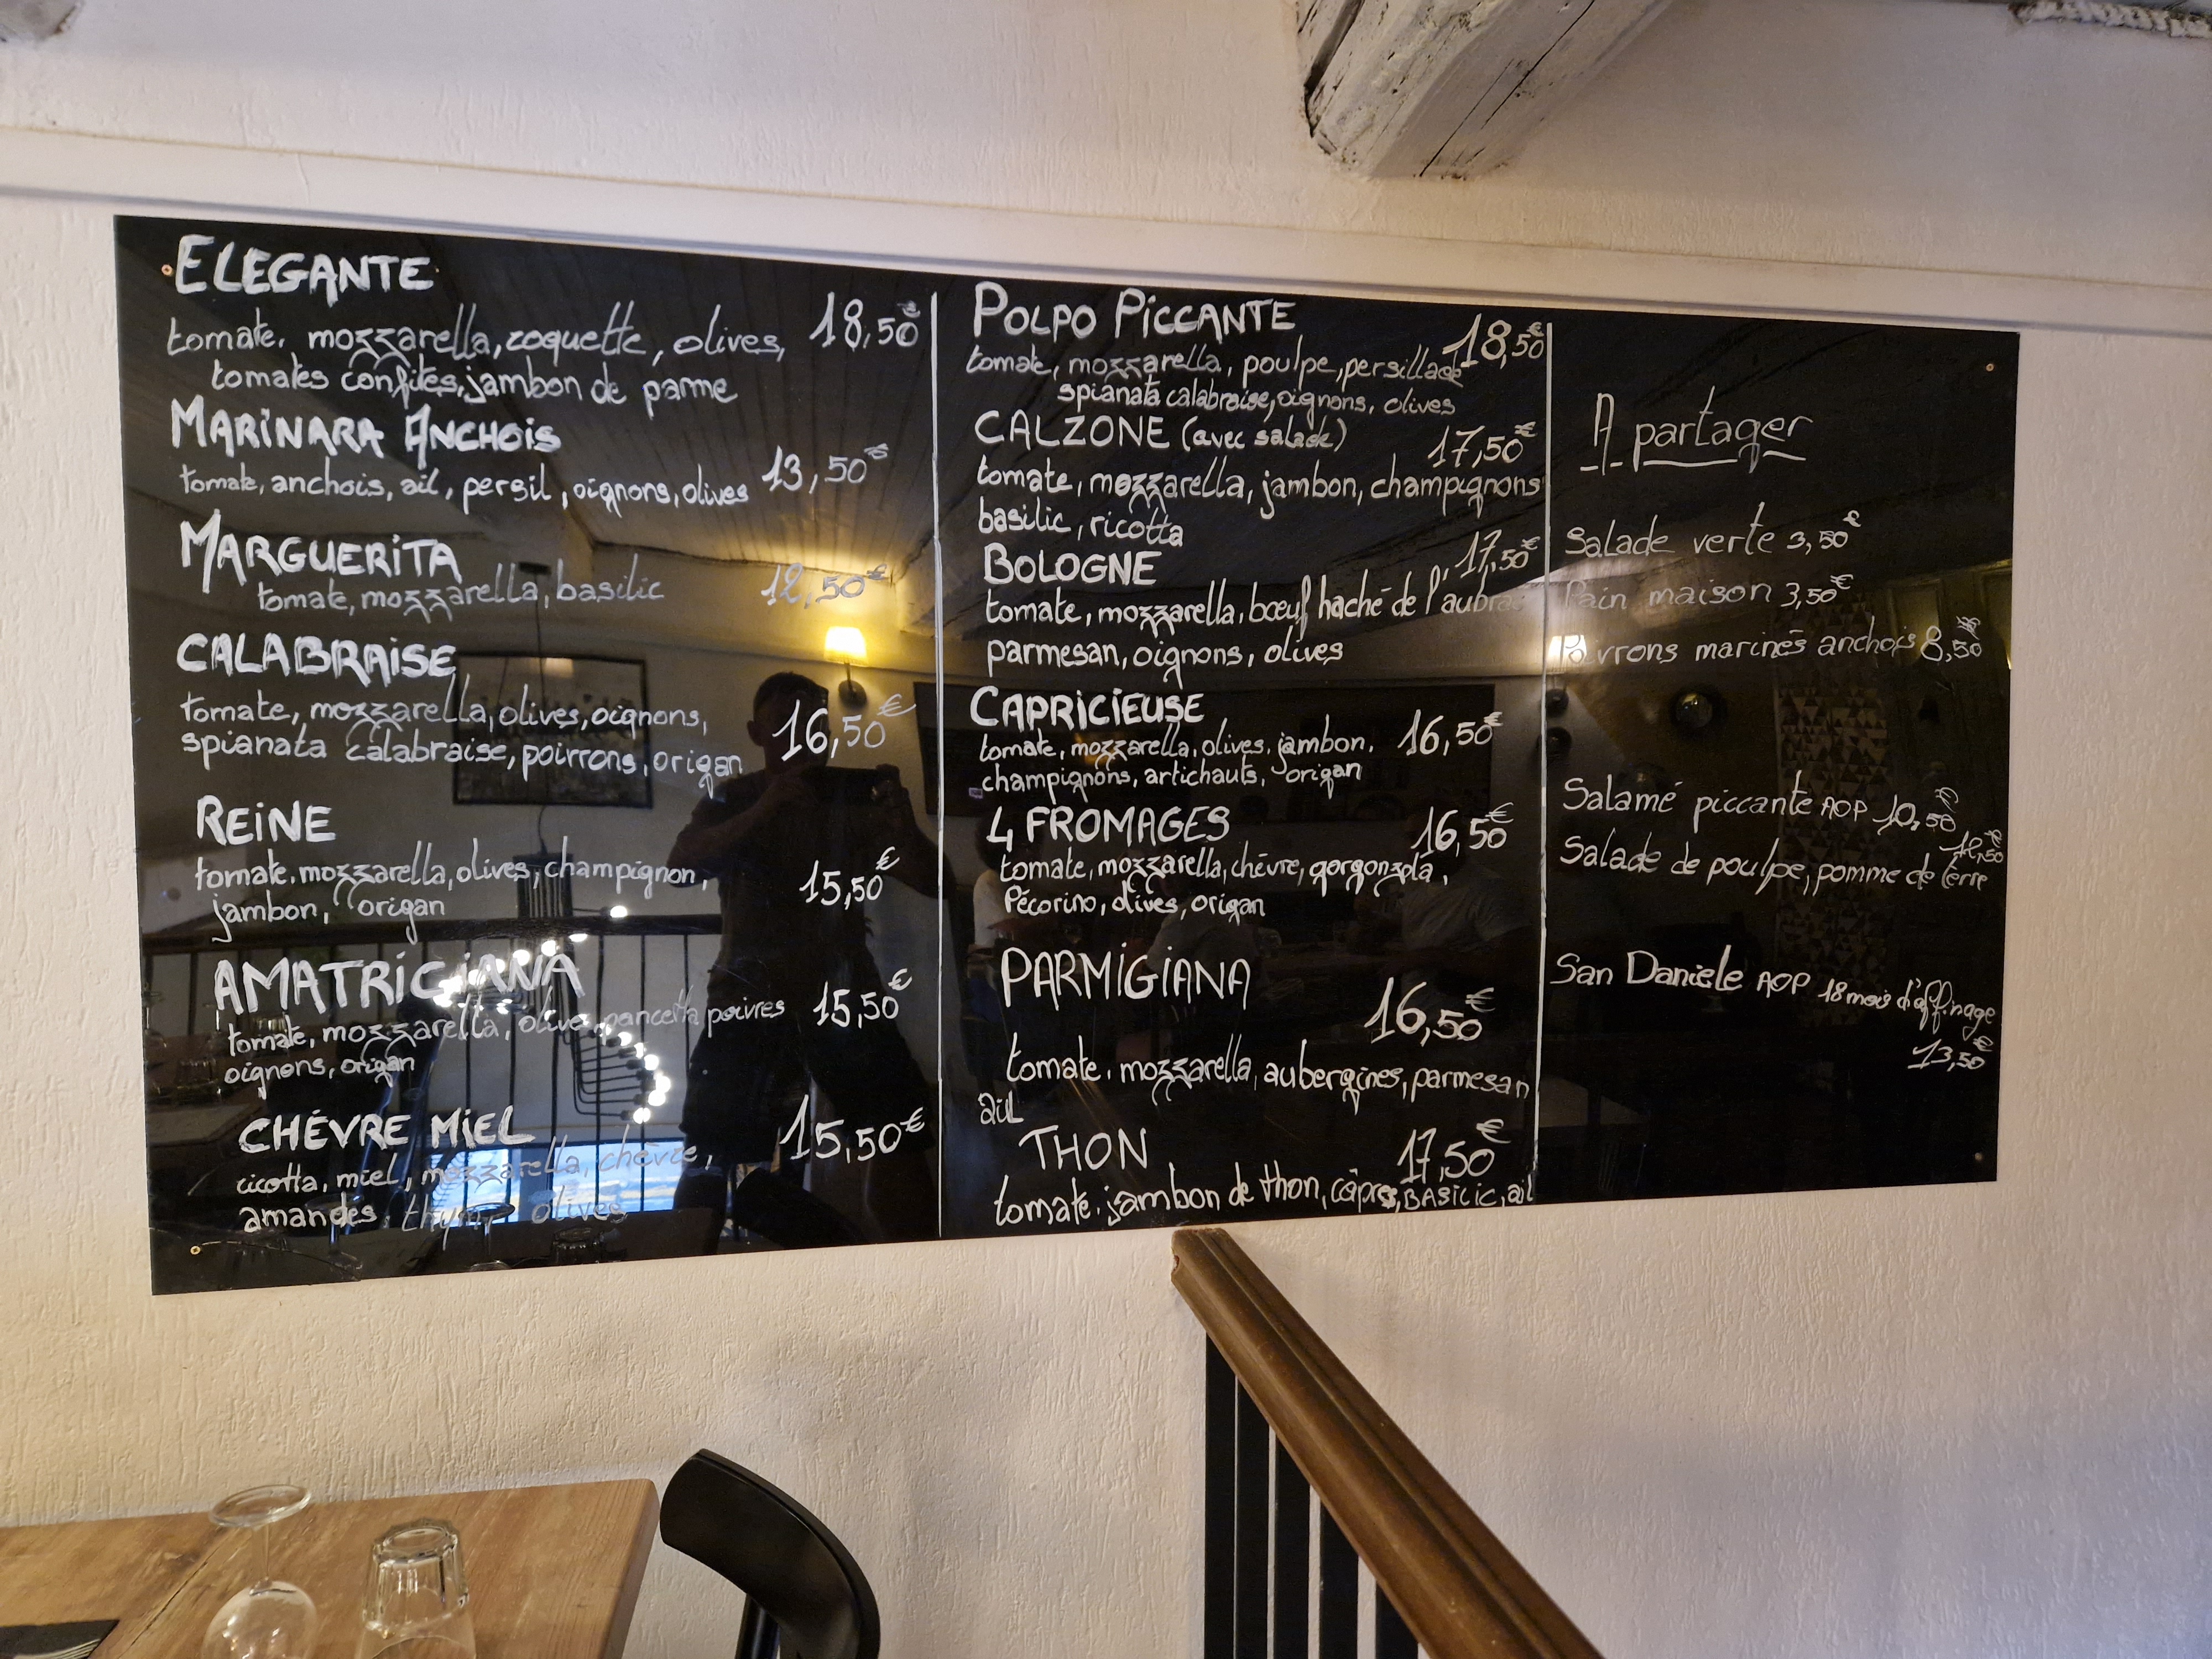 ELEGANTE
18,50€
tomate, mozzarella, roquette, olives,
tomates confites, jambon de parme
MARINARA ANCHOIS
13,50€
tomate, anchois, ail, persil, oignons, olives
MARGUERITA
tomate, mozzarella, basilic 12,50€
CALABRAISE
tomate, mozzarella, olives, oignons,
16,50€
spianata calabraise, poirrons, origan
REINE
tomate, mozzarella, olives, champignon,
15,50€
jambon, origan
AMATRICIANA
tomate, mozzarella, olive, pancetta poivres 15,50€
oignons, origan
CHÈVRE MIEL
15,50€
ricotta, miel, mozzarella, chèvre,
amandes, thym, olives
POLPO PICCANTE
18,50€
tomate, mozzarella, poulpe, persillade
spianata calabraise, oignons, olives
CALZONE (avec salade)
17,50€
tomate, mozzarella, jambon, champignons
basilic, ricotta
BOLOGNE
17,50€
tomate, mozzarella, bœuf haché de l'aubrac
parmesan, oignons, olives
CAPRICIEUSE
tomate, mozzarella, olives, jambon, 16,50€
champignons, artichauts, origan
4 FROMAGES
16,50€
tomate, mozzarella, chèvre, gorgonzola,
Pécorino, olives, origan
PARMIGIANA
16,50€
tomate, mozzarella, aubergines, parmesan
ail
THON
17,50€
tomate, jambon de thon, câpres, BASILIC, ail
A partager
Salade verte 3,50€
Pain maison 3,50€
Poivrons marinés anchois 8,50€
Salamé piccante AOP 10,50€
Salade de poulpe, pomme de terre
San Daniele AOP 18 mois d'affinage
13,50€